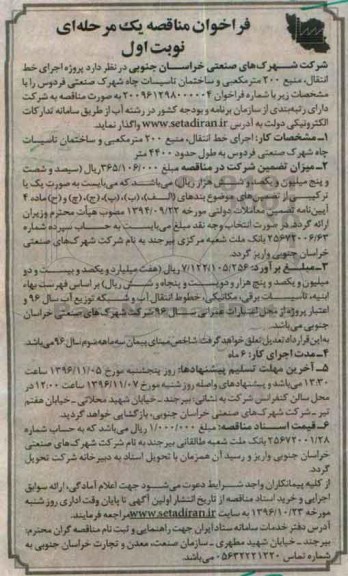 فراخوان مناقصه یک مرحله‌ای
نوبت اول
شرکت شهرک‌های صنعتی خراسان جنوبی در نظر دارد پروژه اجرای خط
انتقال، منبع ۲۰۰ مترمکعبی و ساختمان تاسیسات چاه شهرک صنعتی فردوس را با
مشخصات زیر با شماره فراخوان ۲۰۰۹۶۱۲۹۸۰۰۰۰۰۴ به صورت مناقصه به شرکت
دارای رتبه‌بندی از سازمان برنامه و بودجه کشور در رشته آب از طریق سامانه تدارکات
الکترونیکی دولت به آدرس www.setadiran.ir واگذار نماید.
۱ـ مشخصات کار: اجرای خط انتقال، منبع ۲۰۰ مترمکعبی و ساختمان تاسیسات
چاه شهرک صنعتی فردوس به طول حدود ۴۴۰۰ متر
۲ـ میزان تضمین شرکت در مناقصه مبلغ ۳۶۵/۱۰۶/۰۰۰ ریال (سیصد و شصت
و پنج میلیون و یکصد و شش هزار ریال) می‌باشد که می‌بایست به صورت یک یا
ترکیبی از تضمین‌های موضوع بندهای (الف)، (ب)، (پ)، (ج)، (چ) و (ح) ماده ۴
آیین‌نامه تضمین معاملات دولتی مورخه ۱۳۹۴/۰۹/۲۲ مصوب هیأت محترم وزیران
ارائه گردد. در صورت انتخاب وجه نقد مبلغ می‌بایست به حساب سپرده شماره
۲۵۶۷۲۰۰۶/۶۳ بانک ملت شعبه مرکزی بیرجند به نام شرکت شهرک‌های صنعتی
خراسان جنوبی واریز گردد.
۳ـ مبلغ برآورد: ۷/۱۲۲/۱۰۵/۲۵۶ ریال (هفت میلیارد و یکصد و بیست و دو
میلیون و یکصد و پنج هزار و دویست و پنجاه و شش ریال) بر اساس فهرست بهاء
ابنیه، تاسیسات برقی، مکانیکی، خطوط انتقال آب و شبکه توزیع آب سال ۹۶ و
اعتبار پروژه از محل اعتبارات عمرانی سال ۹۶ شرکت شهرک‌های صنعتی خراسان
جنوبی می‌باشد.
به این قرارداد تعدیل تعلق خواهد گرفت. شاخص مبنای پیمان سه ماهه سوم سال ۹۶ می‌باشد
۴ـ مدت اجرای کار: ۶ ماه
۵ـ آخرین مهلت تسلیم پیشنهادها: روز پنجشنبه مورخ ۱۳۹۶/۱۱/۰۵ ساعت
۱۳:۳۰ می‌باشد و پیشنهادهای واصله روز شنبه مورخ ۱۳۹۶/۱۱/۰۷ ساعت ۱۲:۰۰ در
محل سالن کنفرانس شرکت به نشانی: بیرجند ـ خیابان شهید محلاتی ـ خیابان هفتم
تیر ـ شرکت شهرک‌های صنعتی خراسان جنوبی، بازگشایی خواهد گردید.
۶ـ قیمت اسناد مناقصه: مبلغ ۱/۰۰۰/۰۰۰ ریال می‌باشد که به حساب شماره
۲۵۶۷۲۰۰۱/۲۸ بانک ملت شعبه طالقانی بیرجند به نام شرکت شهرک‌های صنعتی
خراسان جنوبی واریز و رسید آن همزمان با تحویل اسناد به دبیرخانه شرکت تحویل
گردد.
از کلیه پیمانکاران واجد شرایط دعوت می‌شود جهت اعلام آمادگی، ارائه سوابق
اجرایی و خرید اسناد مناقصه از تاریخ انتشار اولین آگهی تا پایان وقت اداری روز شنبه
مورخه ۱۳۹۶/۱۰/۲۳ به سایت www.setadiran.ir مراجعه فرمایند.
آدرس دفتر خدمات سامانه ستاد ایران جهت راهنمایی و ثبت نام مناقصه گران محترم:
بیرجند ـ خیابان شهید مطهری ـ سازمان صنعت، معدن و تجارت خراسان جنوبی به
شماره تماس ۰۵۶۳۲۲۲۱۲۲۰ می‌باشد.